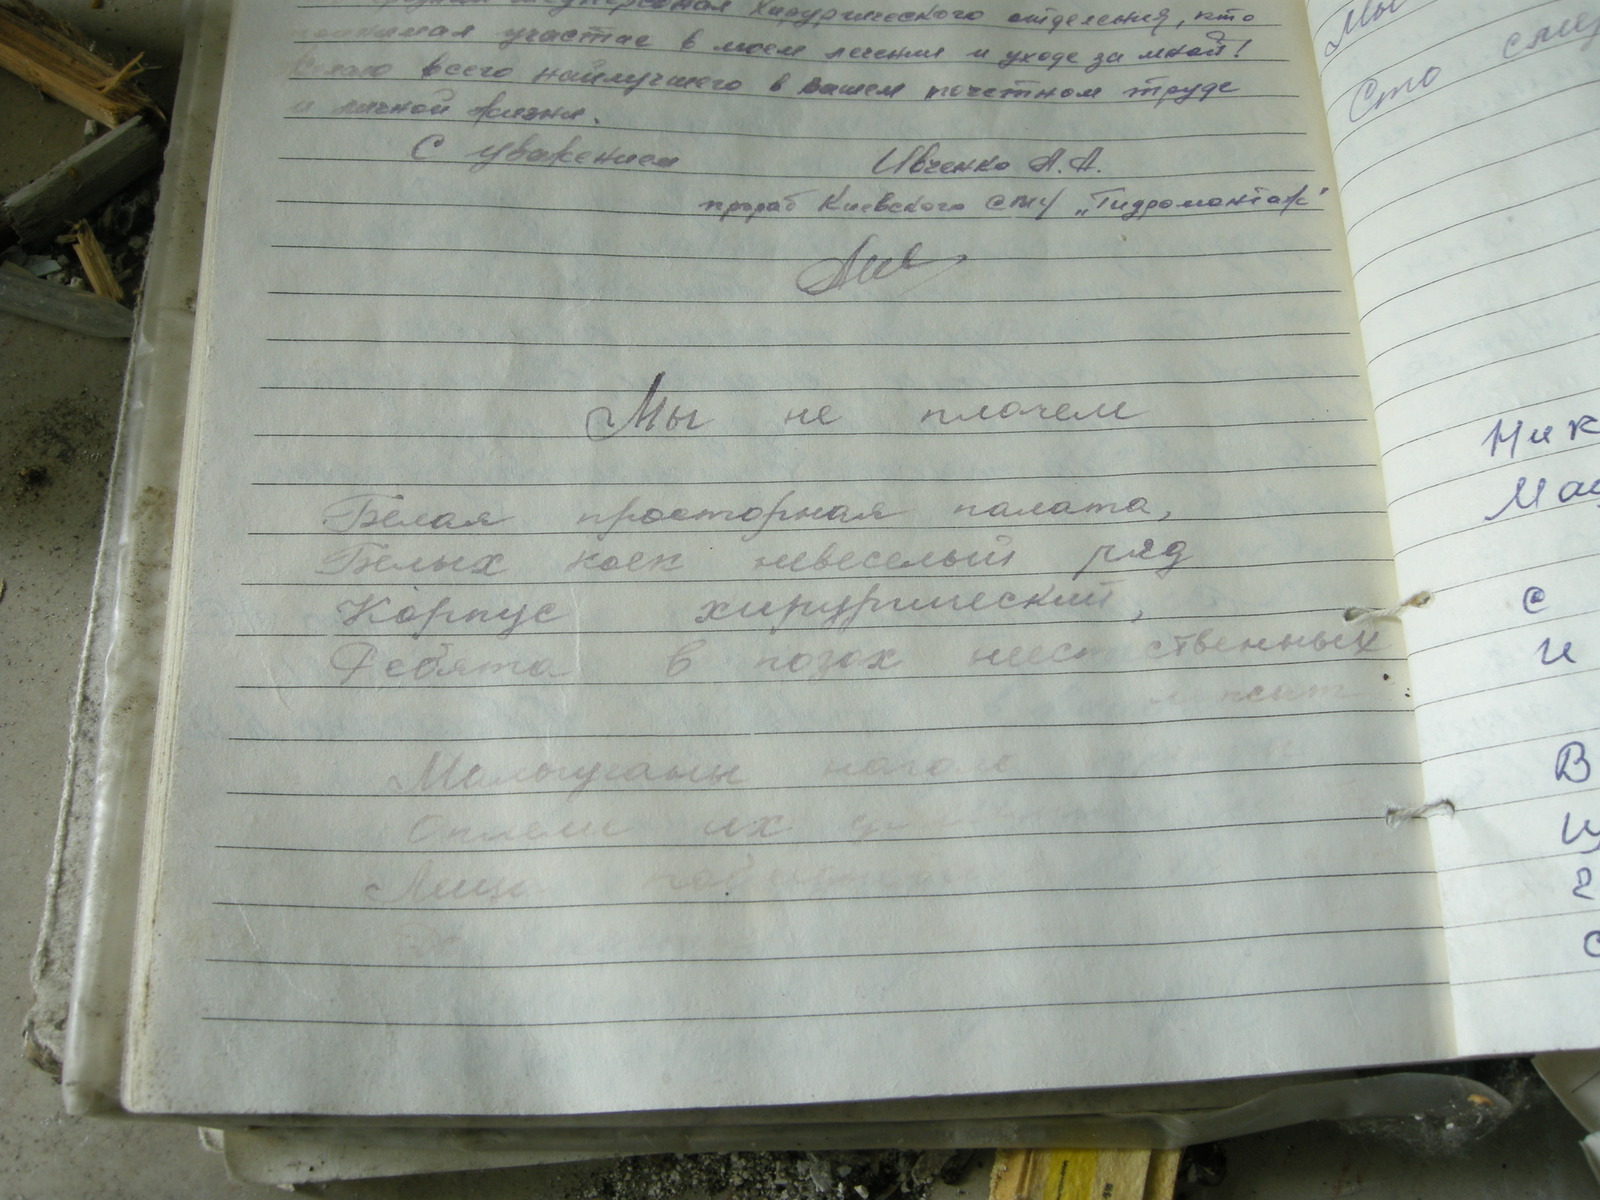 медперсонал хирургического отделения, кто
принимал участие в моем лечении и уходе за мной!
Желаю всего наилучшего в вашем почетном труде
и личной жизни.
С уважением Ивченко А.А.
прораб Киевского СМУ „Гидромонтаж"
Мы не плачем
Белая просторная палата,
Белых коек невеселый ряд
Корпус хирургический,
Ребята в позах неестественных
лежат
Мальчуганы наголо
их
Лица
Мы
Сто
Ник
Мац
с
и
В
ц
г
с